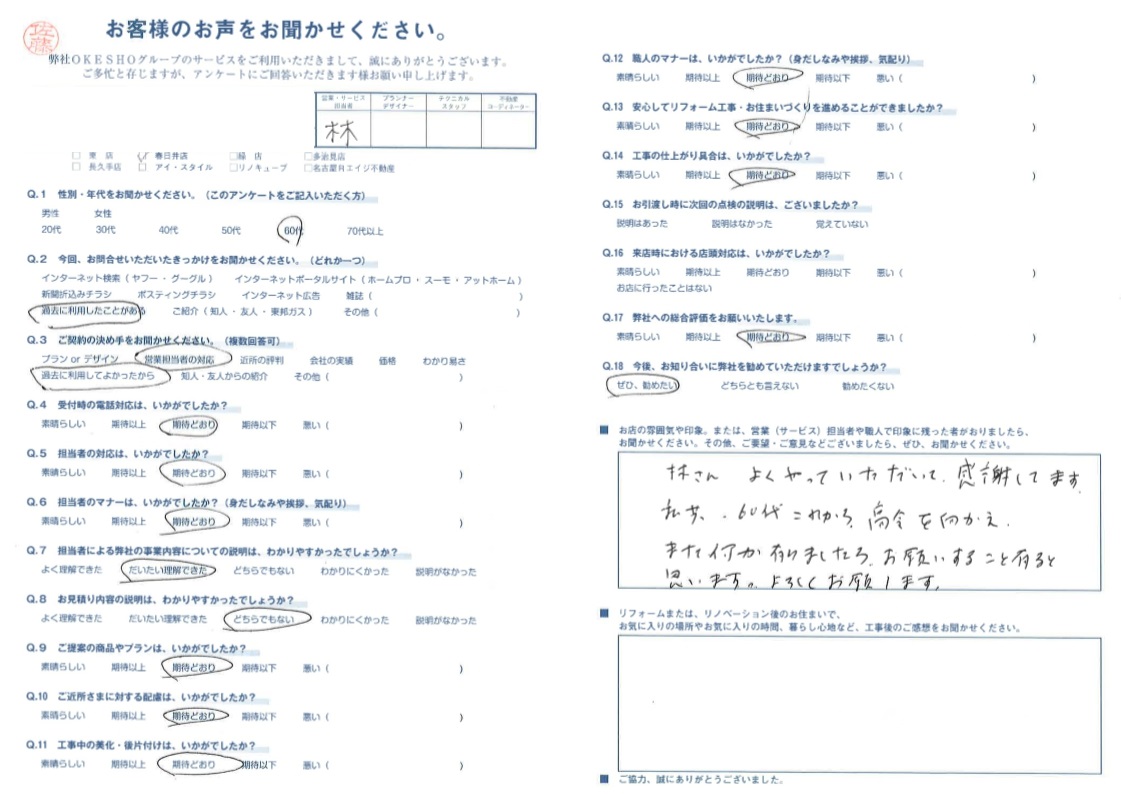 佐藤
お客様のお声をお聞かせください。
弊社OKESHOグループのサービスをご利用いただきまして、誠にありがとうございます。
ご多忙と存じますが、アンケートにご回答いただきます様お願い申し上げます。
営業・サービス担当者 プランナーデザイナー テクニカルスタッフ 不動産コーディネーター
林
□ 東 店 ☑ 春日井店 □緑 店 □多治見店
□ 長久手店 □ アイ・スタイル □リノキューブ □名古屋月エイジ不動産
Q.1 性別・年代をお聞かせください。（このアンケートをご記入いただく方）
男性 女性
20代 30代 40代 50代 60代 70代以上
Q.2 今回、お問合せいただいたきっかけをお聞かせください。（どれか一つ）
インターネット検索（ヤフー・グーグル） インターネットポータルサイト（ホームプロ・スーモ・アットホーム）
新聞折込みチラシ ポスティングチラシ インターネット広告 雑誌（ ）
過去に利用したことがある ご紹介（知人・友人・東邦ガス） その他（ ）
Q.3 ご契約の決め手をお聞かせください。（複数回答可）
プラン or デザイン 営業担当者の対応 近所の評判 会社の実績 価格 わかり易さ
過去に利用してよかったから 知人・友人からの紹介 その他（ ）
Q.4 受付時の電話対応は、いかがでしたか？
素晴らしい 期待以上 期待どおり 期待以下 悪い（ ）
Q.5 担当者の対応は、いかがでしたか？
素晴らしい 期待以上 期待どおり 期待以下 悪い（ ）
Q.6 担当者のマナーは、いかがでしたか？（身だしなみや挨拶、気配り）
素晴らしい 期待以上 期待どおり 期待以下 悪い（ ）
Q.7 担当者による弊社の事業内容についての説明は、わかりやすかったでしょうか？
よく理解できた だいたい理解できた どちらでもない わかりにくかった 説明がなかった
Q.8 お見積り内容の説明は、わかりやすかったでしょうか？
よく理解できた だいたい理解できた どちらでもない わかりにくかった 説明がなかった
Q.9 ご提案の商品やプランは、いかがでしたか？
素晴らしい 期待以上 期待どおり 期待以下 悪い（ ）
Q.10 ご近所さまに対する配慮は、いかがでしたか？
素晴らしい 期待以上 期待どおり 期待以下 悪い（ ）
Q.11 工事中の美化・後片付けは、いかがでしたか？
素晴らしい 期待以上 期待どおり 期待以下 悪い（ ）
Q.12 職人のマナーは、いかがでしたか？（身だしなみや挨拶、気配り）
素晴らしい 期待以上 期待どおり 期待以下 悪い（ ）
Q.13 安心してリフォーム工事・お住まいづくりを進めることができましたか？
素晴らしい 期待以上 期待どおり 期待以下 悪い（ ）
Q.14 工事の仕上がり具合は、いかがでしたか？
素晴らしい 期待以上 期待どおり 期待以下 悪い（ ）
Q.15 お引渡し時に次回の点検の説明は、ございましたか？
説明はあった 説明はなかった 覚えていない
Q.16 来店時における店頭対応は、いかがでしたか？
素晴らしい 期待以上 期待どおり 期待以下 悪い（ ）
お店に行ったことはない
Q.17 弊社への総合評価をお願いいたします。
素晴らしい 期待以上 期待どおり 期待以下 悪い（ ）
Q.18 今後、お知り合いに弊社を勧めていただけますでしょうか？
ぜひ、勧めたい どちらとも言えない 勧めたくない
■ お店の雰囲気や印象。または、営業（サービス）担当者や職人で印象に残った者がおりましたら、
お聞かせください。その他、ご要望・ご意見などございましたら、ぜひ、お聞かせください。
林さん よくやっていただいて、感謝してます。
私共、60代これから、高令を向かえ、
また何か有りましたら、お願いすること有ると
思います。よろしくお願します。
■ リフォームまたは、リノベーション後のお住まいで、
お気に入りの場所やお気に入りの時間、暮らし心地など、工事後のご感想をお聞かせください。
■ ご協力、誠にありがとうございました。